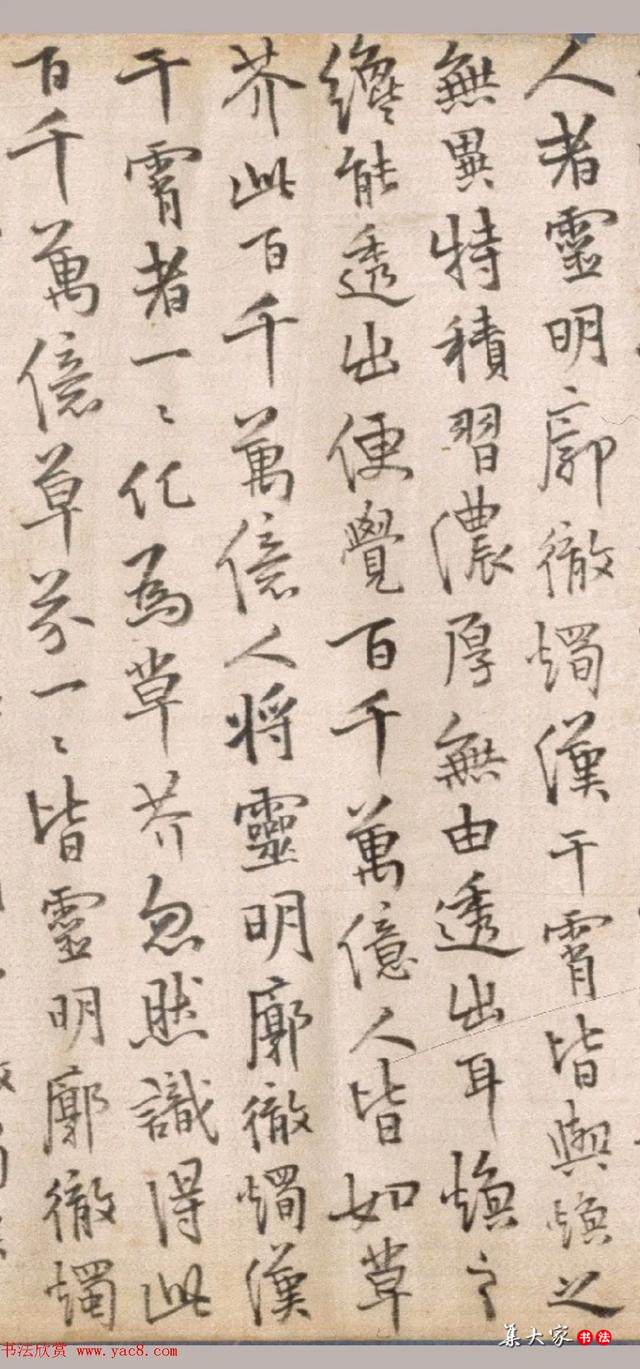 人者靈明廓徹燭漢干霄皆與煥之
無異特積習濃厚無由透出耳煥之
纔能透出便覺百千萬億人皆如草
芥此百千萬億人將靈明廓徹燭漢
干霄者一〻化為草芥忽然識得此
百千萬億草芥一〻皆靈明廓徹燭
集大家 书法
书法欣赏 www.yac8.com